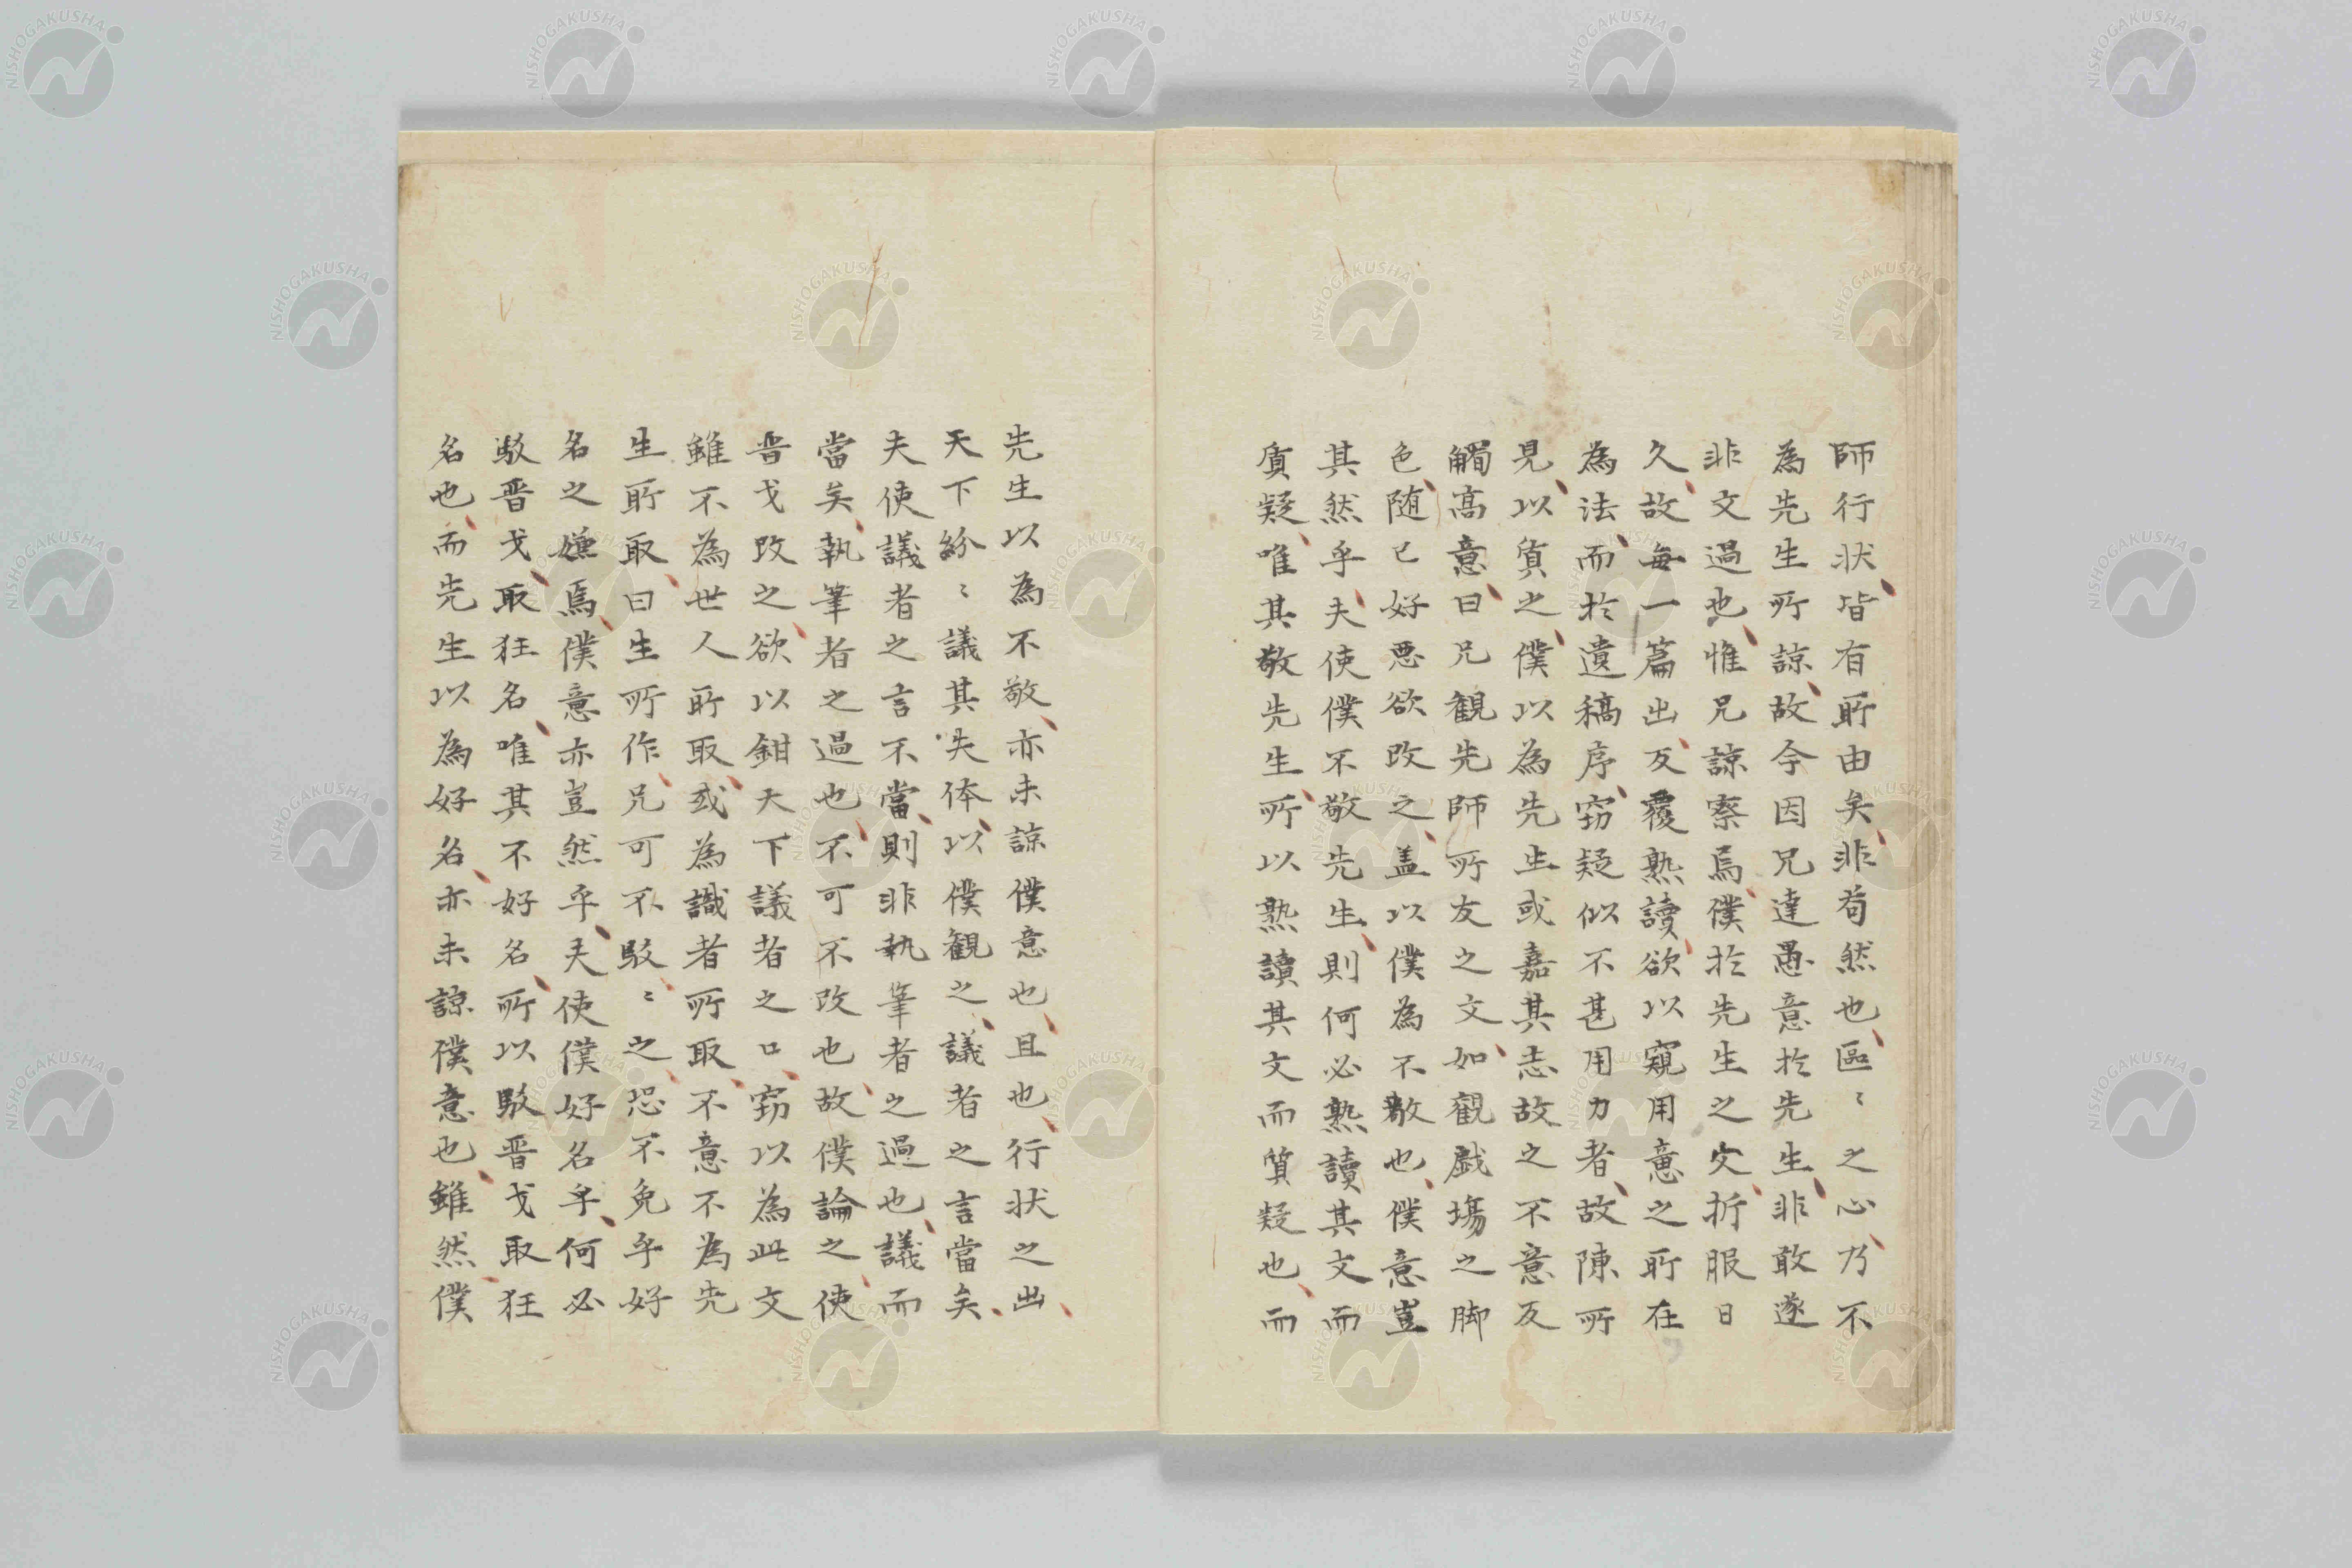 師行状皆有所由矣非苟然也區〻之心乃不
為先生所諒故今因兄達愚意於先生非敢遂
非文過也惟兄諒察焉僕於先生之文折服日
久故每一篇出反覆熟讀欲以窺用意之所在
為法而於遺稿序窃疑似不甚用力者故陳所
見以質之僕以為先生或嘉其志故之不意反
觸高意曰兄観先師所友之文如觀戯場之脚
色随己好悪欲改之盖以僕為不敬也僕意豈
其然乎夫使僕不敬先生則何必熟讀其文而
質疑唯其敬先生所以熟讀其文而質疑也而
先生以為不敬亦未諒僕意也且也行状之出
天下紛〻議其失体以僕観之議者之言當矣
夫使議者之言不當則非執筆者之過也議而
當矣執筆者之過也不可不改也故僕論之使
晋戈改之欲以鉗天下議者之口窃以為此文
雖不為世人所取或為識者所取不意不為先
生所取曰生所作兄可不駁〻之恐不免乎好
名之嫌焉僕意亦豈然乎夫使僕好名乎何必
駁晋戈取狂名唯其不好名所以駁晋戈取狂
名也而先生以為好名亦未諒僕意也雖然僕